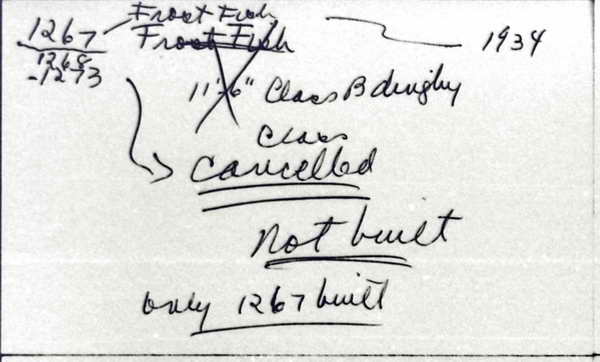 1267 Frost Fish
Frost Fish 1934
1268
-1273
11'-6" Class B dinghy
Class
Cancelled
Not built
only 1267 built